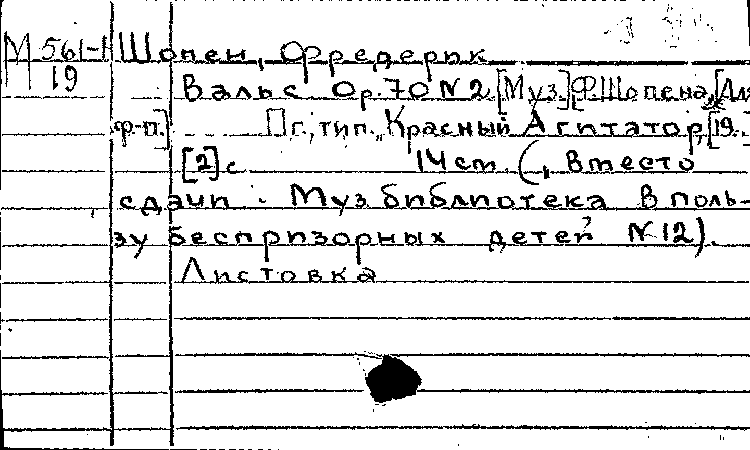 М 561-1 Шопен, Фредерик
19
Вальс Op. 70 N 2. [Муз.] Ф. Шопена, [Дл
ф-п.] Пг., тип. „Красный Агитатор, [19..
[2] с 14 cm. („Вместо
сдачи". Муз библиотека в поль-
зу беспризорных детей N 12).
Листовка